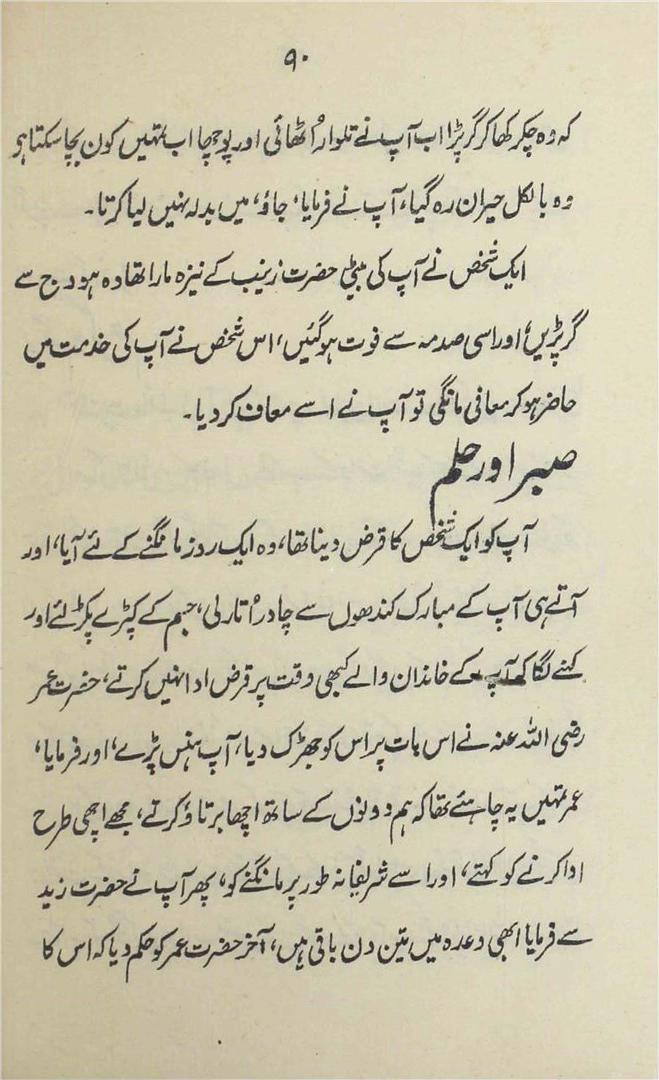 ۹۰
کہ وہ چکر کھا کر گر پڑا اب آپ نے تلوار اُٹھائی اور پوچھا اب تمہیں کون بچا سکتا ہو
وہ بالکل حیران رہ گیا، آپ نے فرمایا، جاؤ، میں بدلہ نہیں لیا کرتا۔
ایک شخص نے آپ کی بیٹی حضرت زینب کے نیزہ مارا تھا وہ ہودج سے
گر پڑیں، اور اسی صدمہ سے فوت ہو گئیں، اس شخص نے آپ کی خدمت میں
حاضر ہو کر معافی مانگی تو آپ نے اسے معاف کر دیا۔
صبر اور حلم
آپ کو ایک شخص کا قرض دینا تھا، وہ ایک روز مانگنے کے لئے آیا، اور
آتے ہی آپ کے مبارک کندھوں سے چادر اُتار لی، جسم کے کپڑے پکڑ لئے اور
کہنے لگا کہ آپ کے خاندان والے کبھی وقت پر قرض ادا نہیں کرتے، حضرت عمر
رضی اللہ عنہ نے اس بات پر اس کو جھڑک دیا، آپ ہنس پڑے، اور فرمایا،
عمر تمہیں یہ چاہئے تھا کہ ہم دونوں کے ساتھ اچھا برتاؤ کرتے، مجھے اچھی طرح
ادا کرنے کو کہتے، اور اسے شریفانہ طور پر مانگنے کو، پھر آپ نے حضرت زید
سے فرمایا ابھی وعدہ میں تین دن باقی ہیں، آخر حضرت عمر کو حکم دیا کہ اس کا